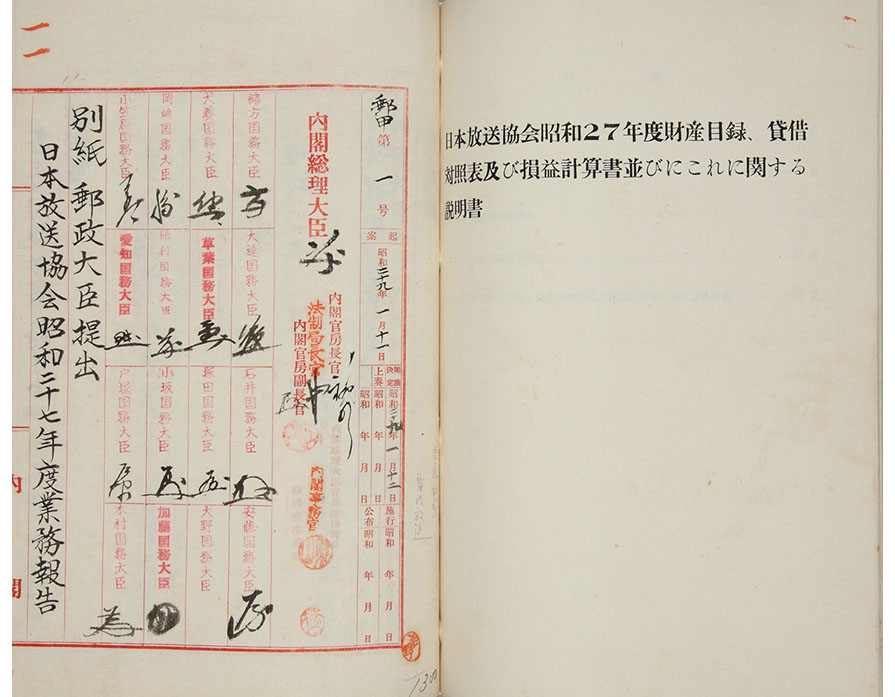 日本放送協会昭和27年度財産目録、貸借
対照表及び損益計算書並びにこれに関する
説明書
郵甲第一号
起案
昭和二十九年一月十一日
閣議決定
昭和二十九年一月十二日
上奏
昭和 年 月 日
施行
昭和 年 月 日
公布
昭和 年 月 日
内閣総理大臣
内閣官房長官
法制局長官
内閣官房副長官
内閣事務官
緒方国務大臣
大達国務大臣
石井国務大臣
安藤国務大臣
犬養国務大臣
草葉国務大臣
塚田国務大臣
大野国務大臣
岡崎国務大臣
小坂国務大臣
加藤国務大臣
小笠原国務大臣
愛知国務大臣
戸塚国務大臣
木村国務大臣
別紙 郵政大臣提出
日本放送協会昭和二十七年度業務報告
内
閣